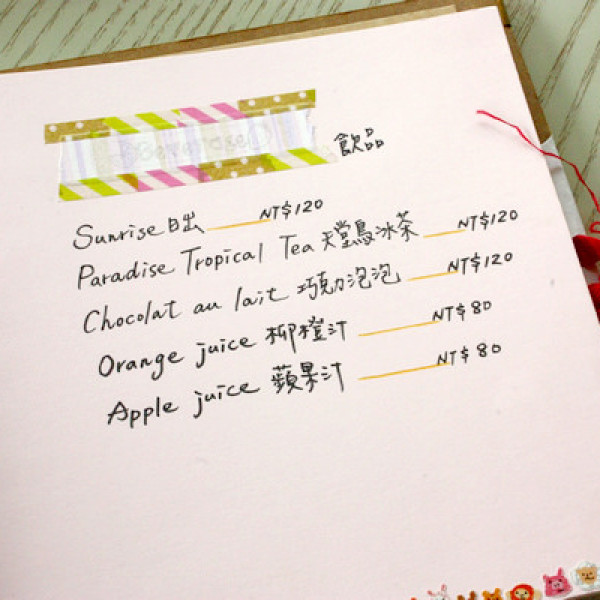 飲品
Sunrise 日出 NT$120
Paradise Tropical Tea 天堂鳥冰茶 NT$120
Chocolat au lait 巧克力泡泡 NT$120
Orange juice 柳橙汁 NT$80
Apple juice 蘋果汁 NT$80